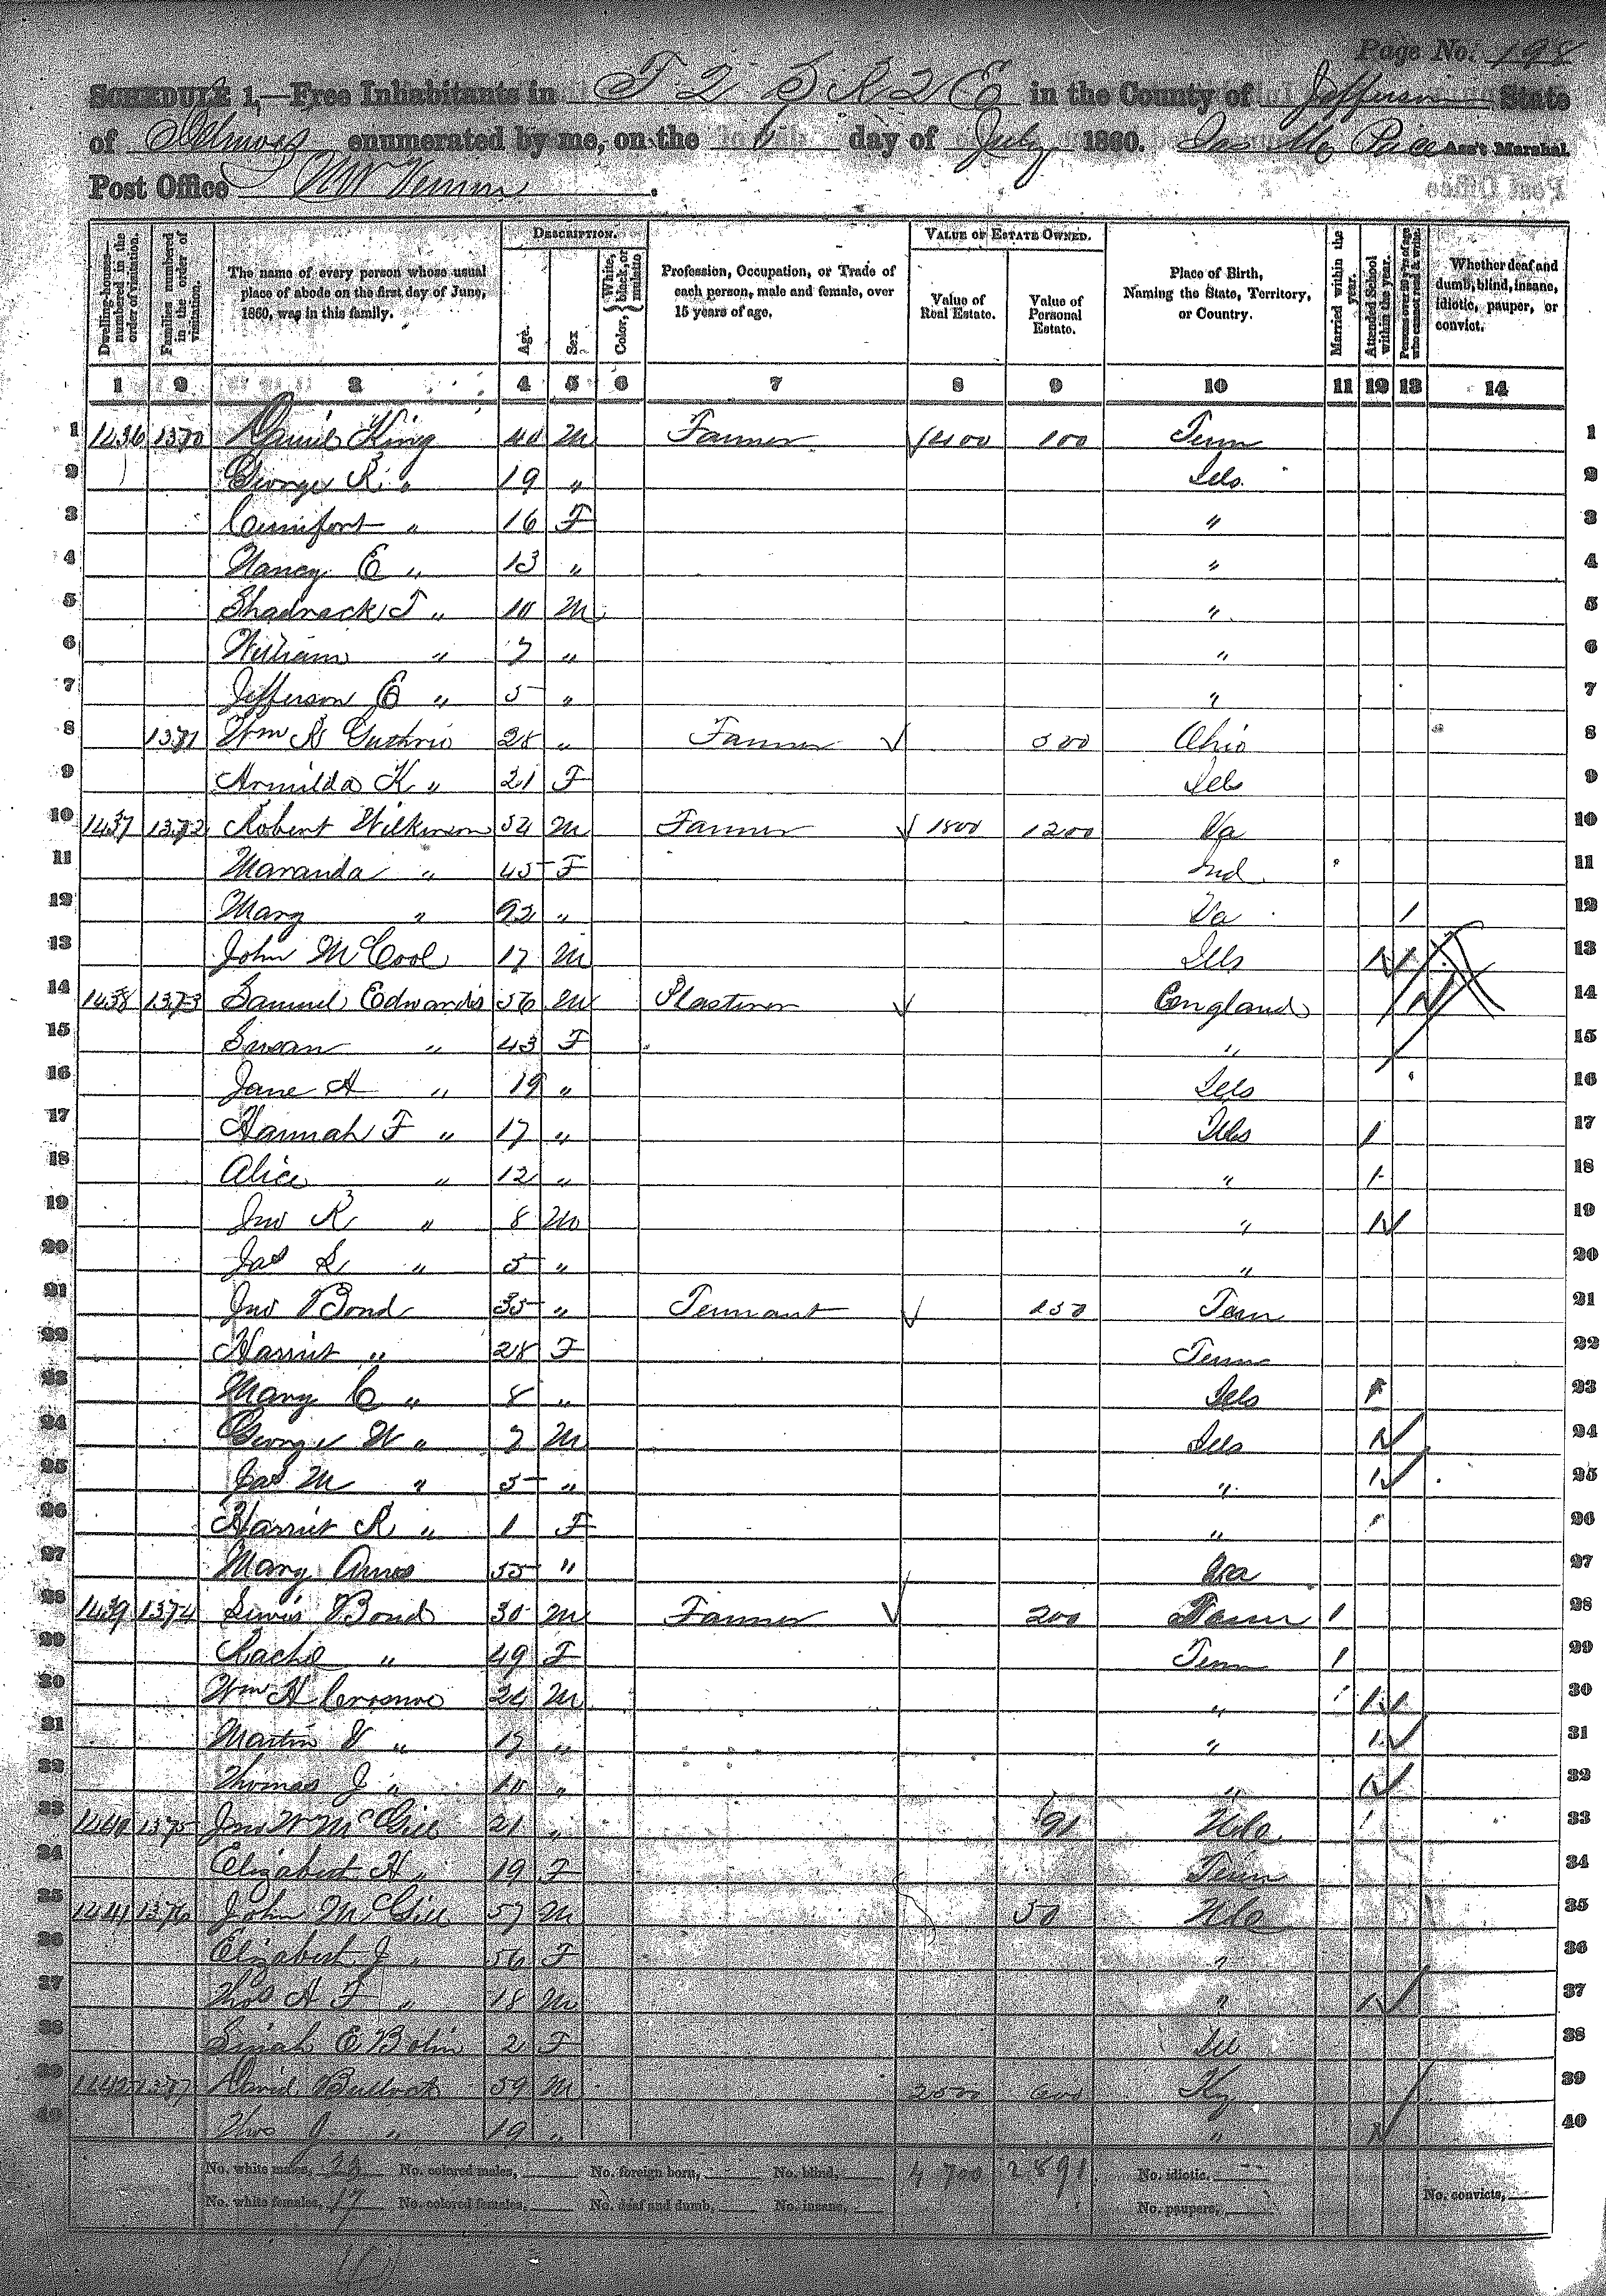 Page No. 198
SCHEDULE 1.—Free Inhabitants in T 2 S R 2 E in the County of Jefferson State
of Illinois enumerated by me, on the day of July 1860. Ass't Marshal.
Post Office Mt Vernon.
DESCRIPTION. VALUE OF ESTATE OWNED.
Dwelling-houses—numbered in the order of visitation.
Families numbered in the order of visitation.
The name of every person whose usual place of abode on the first day of June, 1860, was in this family.
Age.
Sex
Color, White, black, or mulatto
Profession, Occupation, or Trade of each person, male and female, over 15 years of age.
Value of Real Estate.
Value of Personal Estate.
Place of Birth, Naming the State, Territory, or Country.
Married within the year.
Attended School within the year.
Persons over 20 y'rs of age who cannot read & write.
Whether deaf and dumb, blind, insane, idiotic, pauper, or convict.
1 2 3 4 5 6 7 8 9 10 11 12 13 14
1 1436 1370 King 40 M Farmer 400 100 Tenn 1
2 George R " 19 " Ills 2
3 " 16 F " 3
4 Nancy E " 13 " " 4
5 Shadrack T " 10 M " 5
6 William " 7 " " 6
7 Jefferson E " 5 " " 7
8 1371 Wm R Guthrie 28 " Farmer 500 Ohio 8
9 Armilda K " 21 F Ills 9
10 1437 1372 Robert Wilkerson 54 M Farmer 1800 1200 Va 10
11 Maranda " 45 F Ind 11
12 Mary " 92 " Va / 12
13 John McCool 17 M Ills 1 13
14 1438 1373 Samuel Edwards 56 M Plasterer England 14
15 Susan " 43 F " 15
16 Jane A " 19 " Ills 16
17 Hannah F " 17 " Ills 1 17
18 Alice " 12 " " 1 18
19 Jno R " 8 M " 1 19
20 Jas S " 5 " " 20
21 Jno Bond 35 " Tennant 150 Tenn 21
22 Harriet " 28 F Tenn 22
23 Mary C " 8 " Ills 1 23
24 George W " 7 M Ills 1 24
25 Jas M " 5 " " 1 25
26 Harriet R " 1 F " 26
27 Mary 55 " 27
28 1439 1374 Lewis Bond 30 M Farmer 200 Tenn 1 28
29 Rachel " 49 F Tenn 1 29
30 Wm H 24 M " 1 30
31 Martin V " 17 " " 1 31
32 Thomas J " 10 " " 1 32
33 1440 1375 Jno W McGill 21 " 91 33
34 Elizabeth H " 19 F Tenn 34
35 1441 1376 John McGill 57 M 50 35
36 Elizabeth J " 56 F " 36
37 Thos A F " 18 M " 1 37
38 E Bolin 2 F Ill 38
39 1442 1377 David Bullock 59 M 2500 600 Ky 39
40 Thos J " 19 " " 1 40
No. white males, 23 No. colored males, No. foreign born, No. blind, 4 700 2891 No. idiotic,
No. white females, 17 No. colored females, No. deaf and dumb, No. insane, No. paupers, No. convicts,